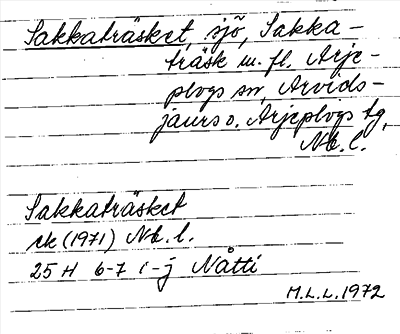 Sakkaträsket, sjö, Sakka-
träsk m. fl. Arje-
plogs sn, Arvids-
jaurs o. Arjeplogs tg,
Nb. l.
Sakkaträsket
ek (1971) Nb. l.
25 H 6-7 i-j Nåtti
M.L.L. 1972